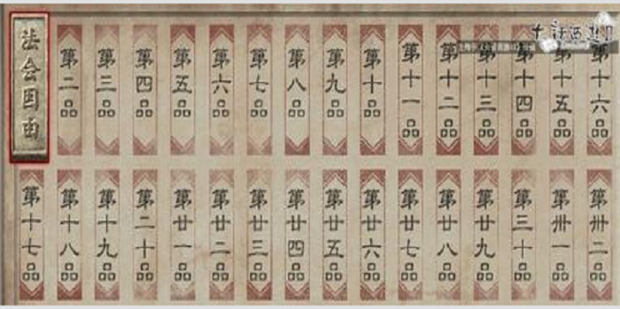 法会因由
第二品
第三品
第四品
第五品
第六品
第七品
第八品
第九品
第十品
第十一品
第十二品
第十三品
第十四品
第十五品
第十六品
第十七品
第十八品
第十九品
第二十品
第廿一品
第廿二品
第廿三品
第廿四品
第廿五品
第廿六品
第廿七品
第廿八品
第廿九品
第三十品
第卅一品
第卅二品